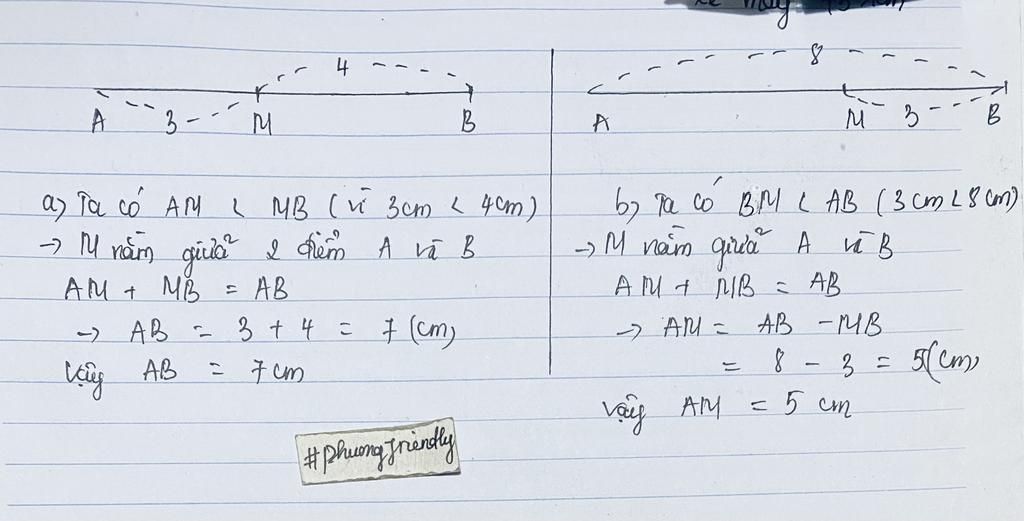 xe máy 45 km
4
A 3 M B
a) Ta có AM < MB (vì 3cm < 4cm)
→ M nằm giữa 2 điểm A và B
AM + MB = AB
→ AB = 3 + 4 = 7 (cm)
Vậy AB = 7cm
8
A M 3 B
b) Ta có BM < AB (3cm < 8cm)
→ M nằm giữa A và B
AM + MB = AB
→ AM = AB - MB
= 8 - 3 = 5(cm)
Vậy AM = 5 cm
#phuongfriendly